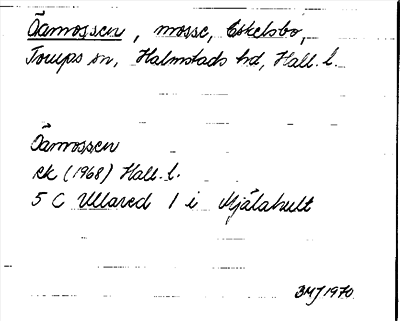 Öamossen, mosse, Eskelsbo,
Torups sn, Halmstads hd, Hall. l.
Öamossen
ek (1968) Hall. l.
5 C Ullared 1 i Mjälahult
BMJ 1970.